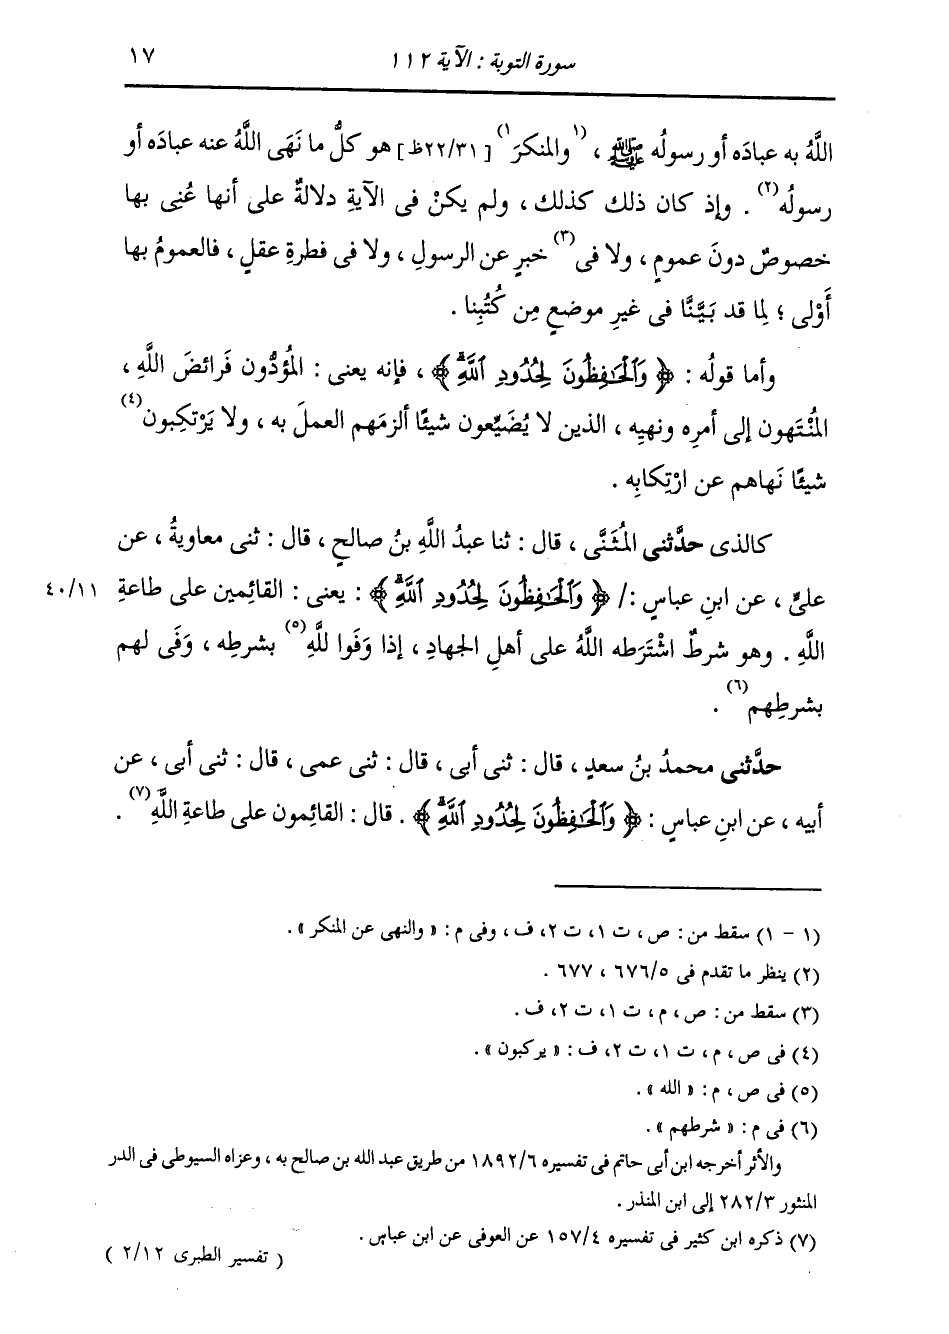 سورة التوبة : الآية ١١٢ ١٧
اللَّهُ به عبادَه أو رسولُه ﷺ ، (١والمنكرَ١) [٢٢/٣١ظ] هو كلُّ ما نَهَى اللَّهُ عنه عبادَه أو
رسولُه(٢) . وإذ كان ذلك كذلك ، ولم يكنْ فى الآيةِ دلالةٌ على أنها عُنِى بها
خصوصٌ دونَ عمومٍ ، ولا فى(٣) خبرٍ عن الرسولِ ، ولا فى فطرةِ عقلٍ ، فالعمومُ بها
أَوْلى ؛ لِما قد بَيَّنَّا فى غيرِ موضعٍ مِن كُتُبِنا .
وأما قولُه : ﴿ وَٱلْحَٰفِظُونَ لِحُدُودِ ٱللَّهِۗ ﴾ ، فإنه يعنى : المُؤَدُّون فَرائضَ اللَّهِ ،
المُنْتَهون إلى أمرِه ونهيِه ، الذين لا يُضَيِّعون شيئًا ألزمَهم العملَ به ، ولا يَرْتكِبون(٤)
شيئًا نَهاهم عن ارْتِكابِه .
كالذى حدَّثنى المُثَنَّى ، قال : ثنا عبدُ اللَّهِ بنُ صالحٍ ، قال : ثنى معاويةُ ، عن
علىٍّ ، عن ابنِ عباسٍ :/ ﴿ وَٱلْحَٰفِظُونَ لِحُدُودِ ٱللَّهِۗ ﴾ : يعنى : القائِمين على طاعةِ ٤٠/١١
اللَّهِ . وهو شرطٌ اشْتَرطه اللَّهُ على أهلِ الجهادِ ، إذا وَفَوا للَّهِ(٥) بشرطِه ، وَفَى لهم
بشرطِهم(٦) .
حدَّثنى محمدُ بنُ سعدٍ ، قال : ثنى أبى ، قال : ثنى عمى ، قال : ثنى أبى ، عن
أبيه ، عن ابنِ عباسٍ : ﴿ وَٱلْحَٰفِظُونَ لِحُدُودِ ٱللَّهِۗ ﴾ . قال : القائِمون على طاعةِ اللَّهِ(٧) .
(١ - ١) سقط من : ص ، ت ١ ، ت ٢ ، ف ، وفى م : « والنهى عن المنكر » .
(٢) ينظر ما تقدم فى ٦٧٦/٥ ، ٦٧٧ .
(٣) سقط من : ص ، م ، ت ١ ، ت ٢ ، ف .
(٤) فى ص ، م ، ت ١ ، ت ٢ ، ف : « يركبون » .
(٥) فى ص ، م : « الله » .
(٦) فى م : « شرطهم » .
والأثر أخرجه ابن أبى حاتم فى تفسيره ١٨٩٢/٦ من طريق عبد الله بن صالح به ، وعزاه السيوطى فى الدر
المنثور ٢٨٢/٣ إلى ابن المنذر .
(٧) ذكره ابن كثير فى تفسيره ١٥٧/٤ عن العوفى عن ابن عباس .
( تفسير الطبرى ٢/١٢ )